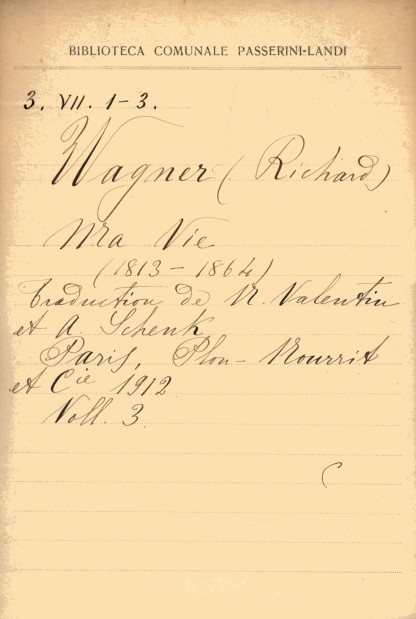 BIBLIOTECA COMUNALE PASSERINI-LANDI
3. VII. 1-3.
Wagner (Richard)
Ma Vie
(1813-1864)
Traduction de N. Valentin
et A. Schenk
Paris, Plon-Nourrit
et Cie 1912
Voll. 3.